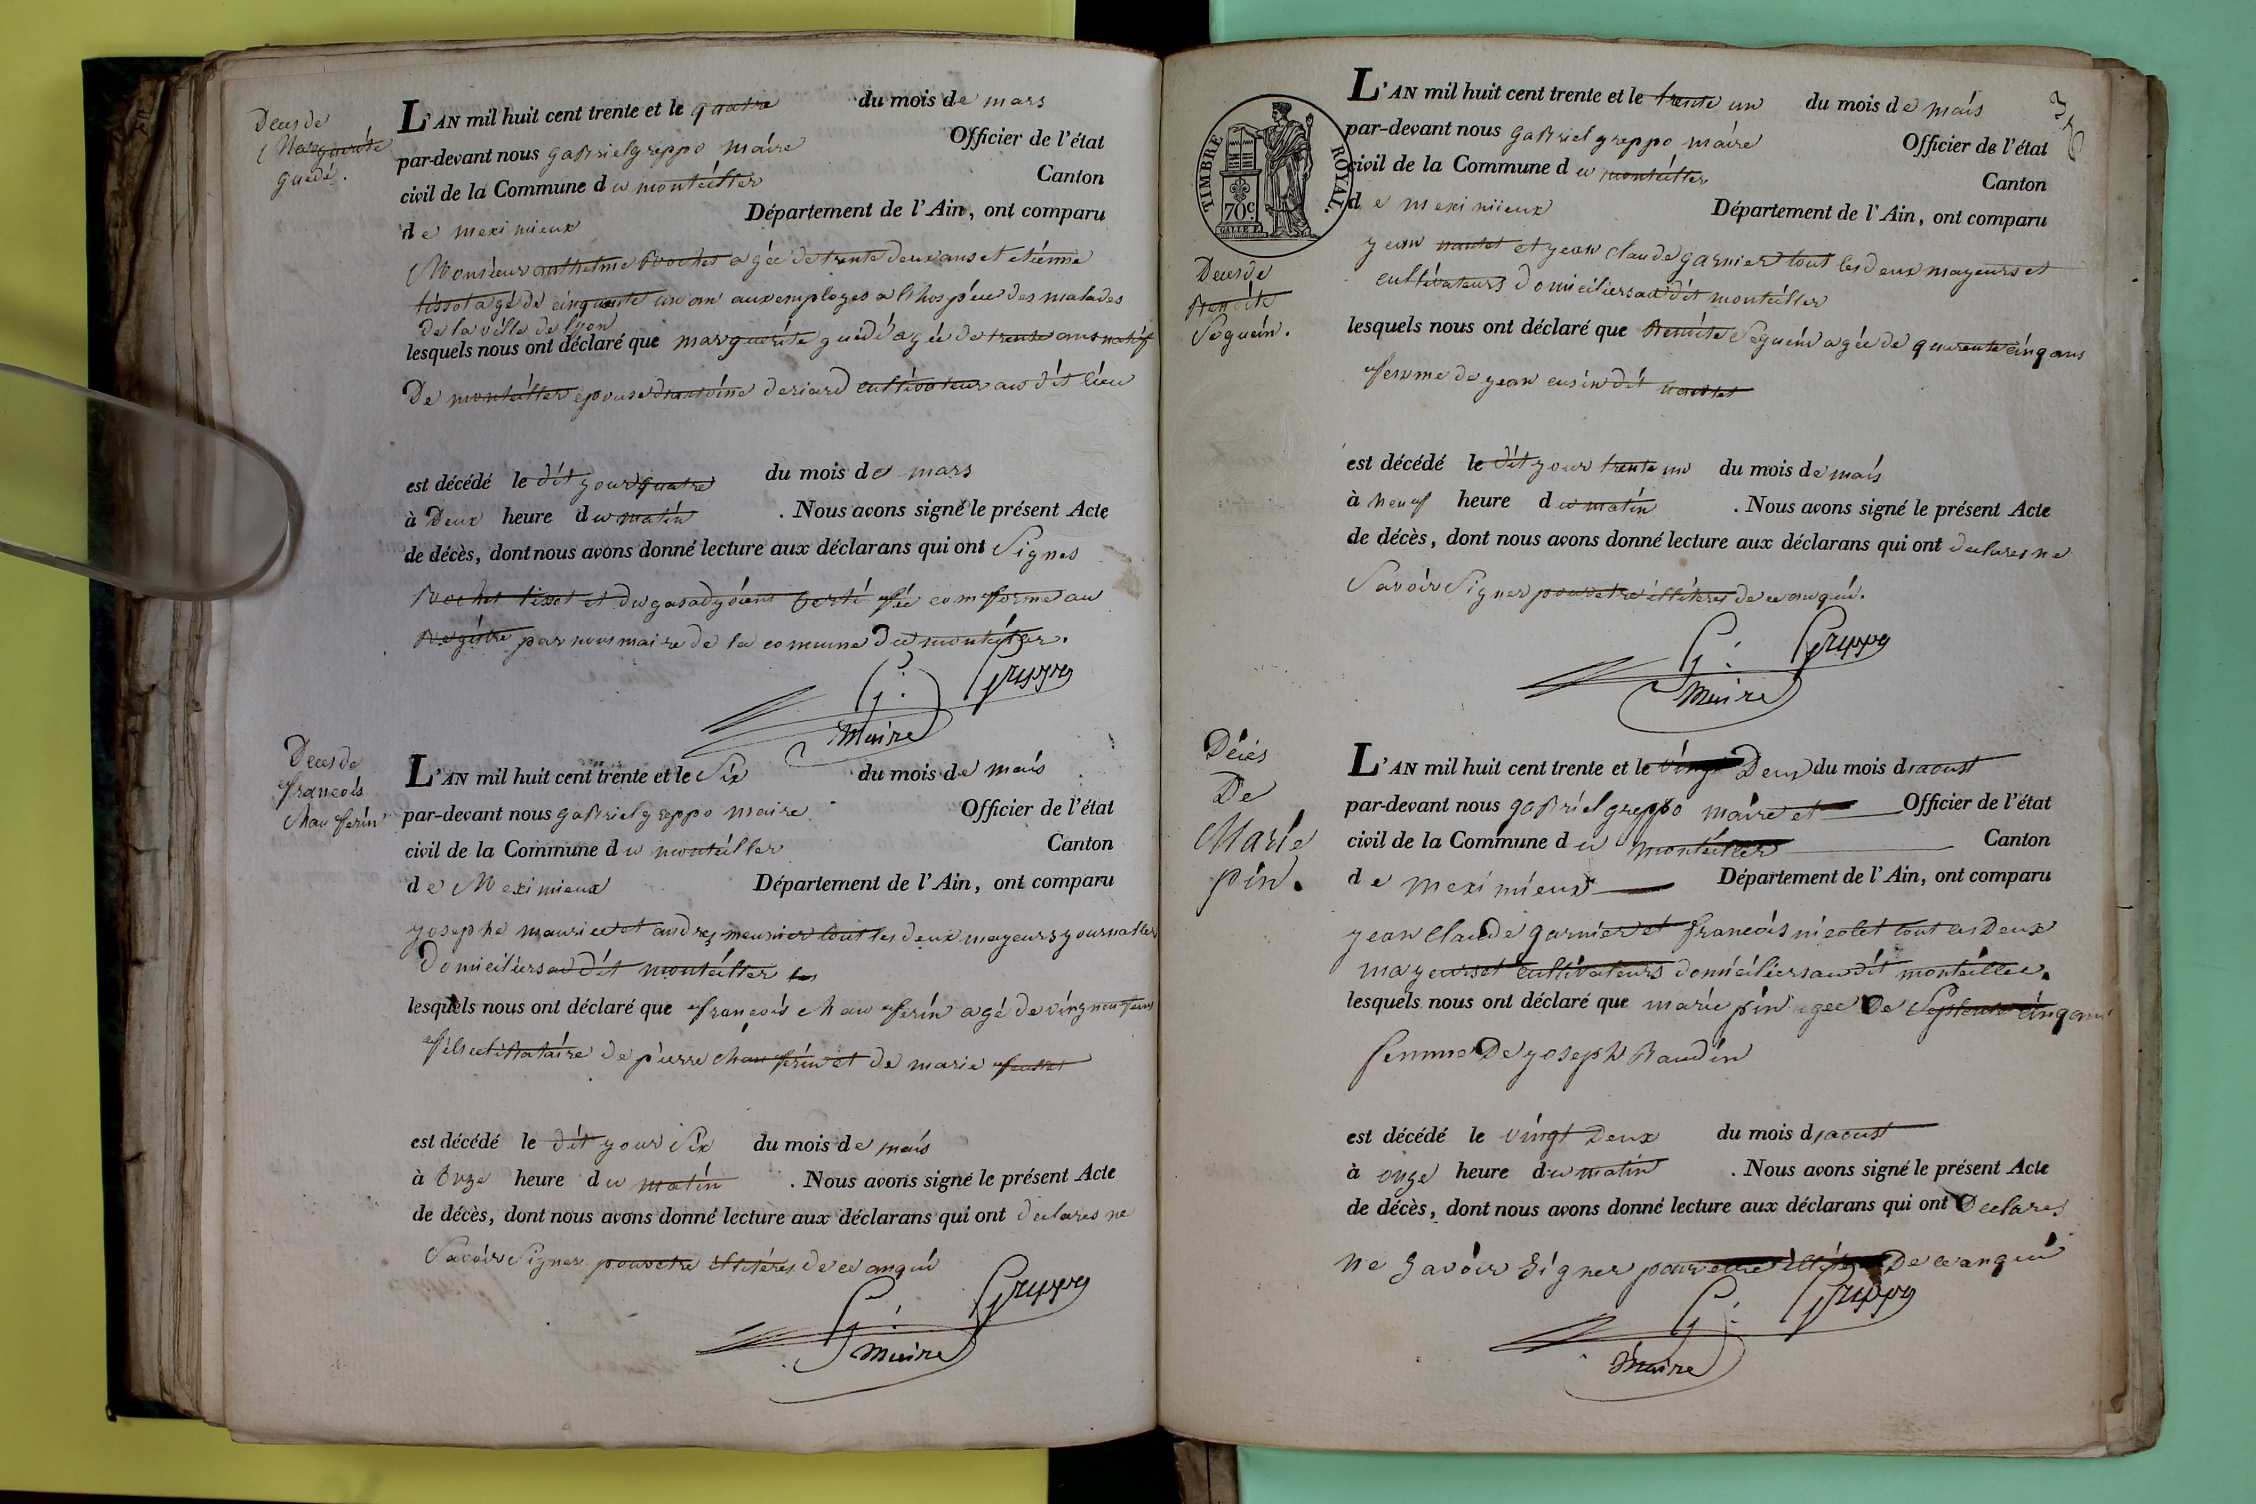 Deces de
Marguerite
guedé.
L'AN mil huit cent trente et le quatre du mois de mars
par-devant nous gabriel greppo maire Officier de l'état
civil de la Commune du monteillier Canton
de meximieux Département de l'Ain, ont comparu
Monsieur anthelme Rochet agée de trente deux ans et etienne
tissot agé de cinquante un an aux employes a l'hospice des malades
de la ville de lyon
lesquels nous ont déclaré que marguerite guedé agée de trente ans natif
De monteillier epouse d'antoine deriard cultivateur au dit lieu
est décédé le dit your quatre du mois de mars
à Deux heure du matin . Nous avons signé le présent Acte
de décès, dont nous avons donné lecture aux déclarans qui ont Signes
Rochet tissot et certifiée comforme au
Registre par nous maire de la comune du monteiller.
G: Greppo
Maire
Deces de
francois
chauferin
L'AN mil huit cent trente et le Six du mois de mais
par-devant nous gabriel greppo maire Officier de l'état
civil de la Commune du monteiller Canton
de Meximieux Département de l'Ain, ont comparu
yosephe maurice et andrez meunier tout les deux mayeurs yournallier
Domiciliers au dit monteiller les
lesquels nous ont déclaré que francois chauferin agé de vingneuf ans
fils celibataire de pierre chauferin et de marie
est décédé le dit your Six du mois de mais
à Onze heure du matin . Nous avons signé le présent Acte
de décès, dont nous avons donné lecture aux déclarans qui ont declares ne
Savoir Signer pour etre illiteres de ce anqui
G: Greppo
Maire
36
TIMBRE ROYAL.
70c
L'AN mil huit cent trente et le trente un du mois de mais
par-devant nous gabriel greppo maire Officier de l'état
civil de la Commune du monteiller Canton
de meximieux Département de l'Ain, ont comparu
Deces de
Benoite
Seguin.
yean nantet et yean claude garnier tout les deux mayeurs et
cultivateurs domiciliers au dit monteiller
lesquels nous ont déclaré que Benoite Seguin agée de quarente cinq ans
femme de yean cusin dit nantet
est décédé le dit your trente un du mois de mais
à neuf heure du matin . Nous avons signé le présent Acte
de décès, dont nous avons donné lecture aux déclarans qui ont declares ne
Savoir Signer pour etre illiteres de ce anqui.
G: Greppo
Maire
Décés
De
Marie
pin.
L'AN mil huit cent trente et le vingt Deux du mois d'aoust
par-devant nous gabriel greppo maire et Officier de l'état
civil de la Commune du monteiller Canton
de meximieux Département de l'Ain, ont comparu
yean claude garnier et francois nicolet tout les Deux
mayeurs et cultivateurs domiciliers au dit monteillee.
lesquels nous ont déclaré que marie pin agee De Septente cinq ans
femme De yoseph Baudin
est décédé le vingt Deux du mois d'aoust
à onze heure du matin . Nous avons signé le présent Acte
de décès, dont nous avons donné lecture aux déclarans qui ont Declares
ne Savoir Signer pour etre De ce anqui
G: Greppo
Maire